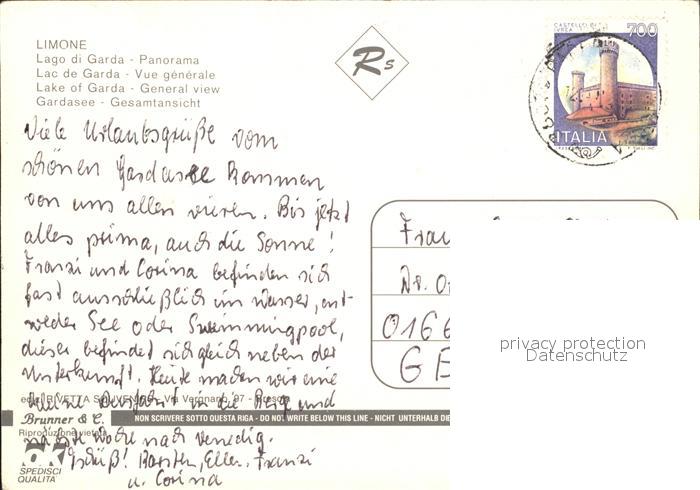 LIMONE
Lago di Garda - Panorama
Lac de Garda - Vue générale
Lake of Garda - General view
Gardasee - Gesamtansicht
Rs
CASTELLO DI IVREA
700
ITALIA
Viele Urlaubsgrüße vom
schönen Gardasee kommen
von uns allen vieren. Bis jetzt
alles prima, auch die Sonne!
Franzi und Corina befinden sich
fast ausschließlich im Wasser, ent-
weder See oder Swimmingpool,
dieser befindet sich gleich neben der
Unterkunft. Heute machen wir eine
kleine in die Berge und
nächste Woche nach Venedig.
Tschüß! Karsten, Ellen, Franzi
u. Corina
Frau
Dr.
0166
GE
privacy protection
Datenschutz
RIVETTA Via Vergnano, 97 -
Brunner & C.
NON SCRIVERE SOTTO QUESTA RIGA - DO NOT WRITE BELOW THIS LINE - NICHT UNTERHALB DIE
Riproduzione vietata
OK
SPEDISCI
QUALITÀ